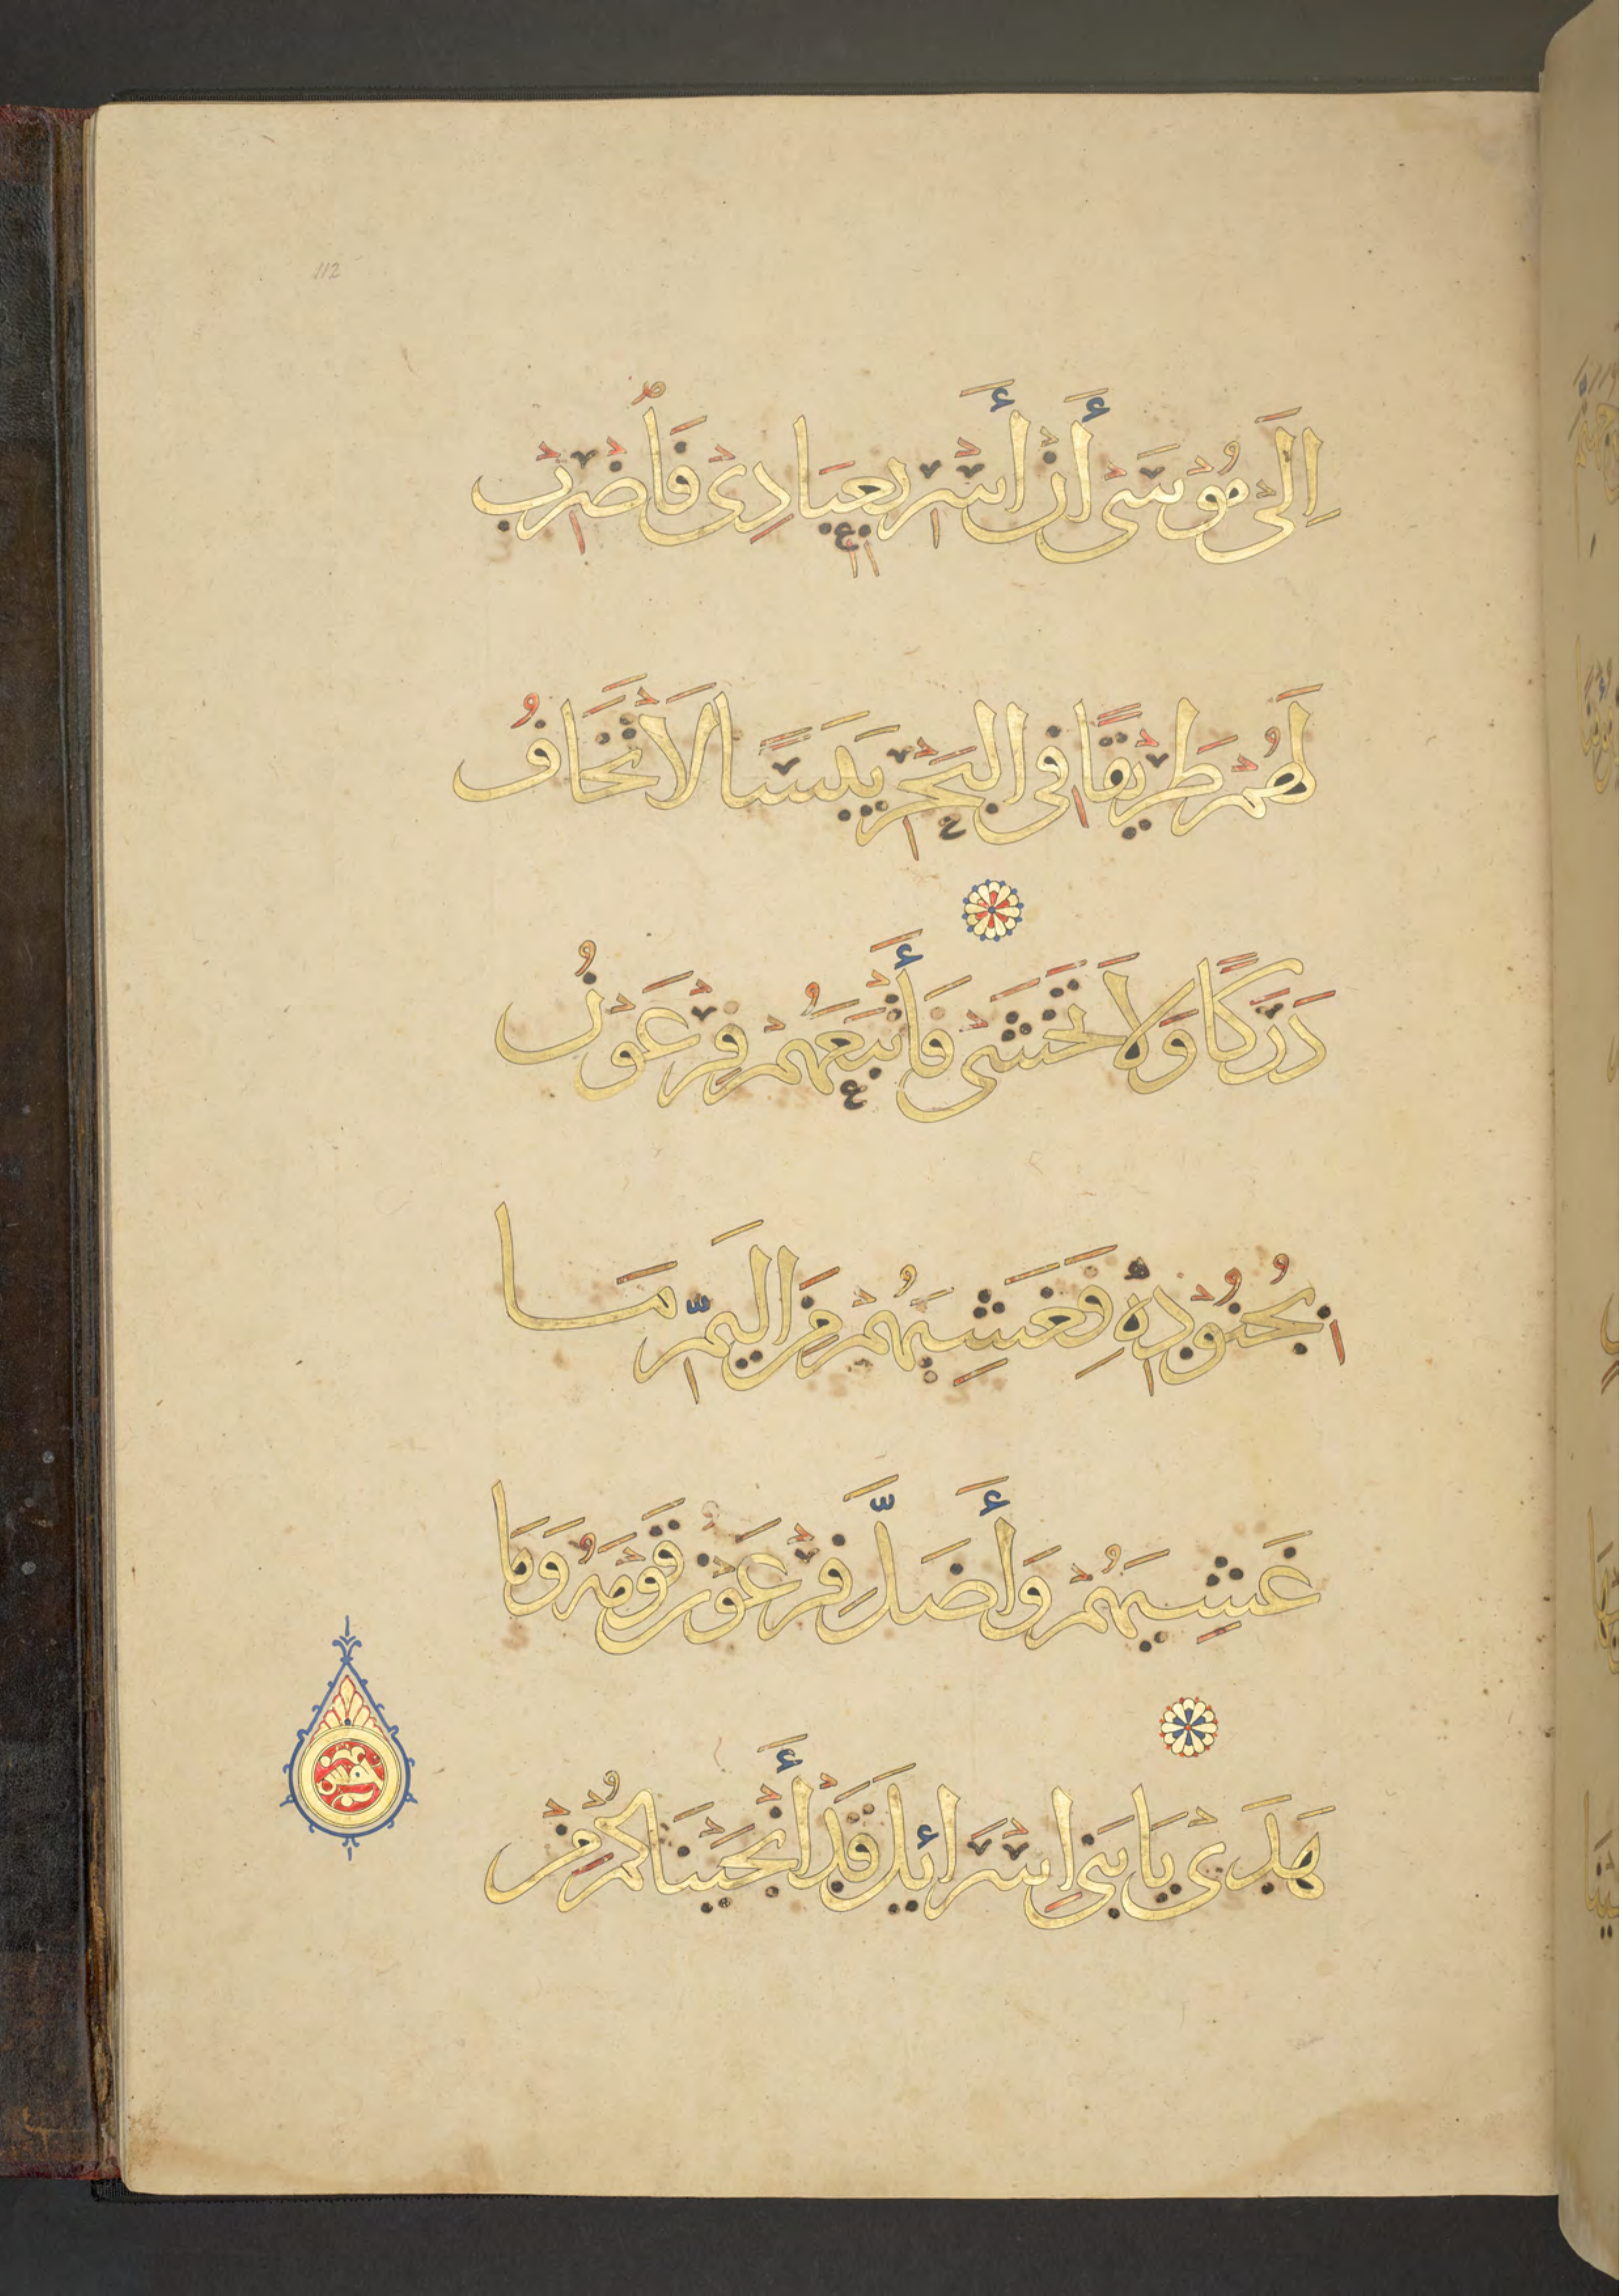 112
إِلَى مُوسَى أَنْ أَسْرِ بِعِبَادِي فَاضْرِبْ
لَهُمْ طَرِيقًا فِي الْبَحْرِ يَبَسًا لَا تَخَافُ
دَرَكًا وَلَا تَخْشَى فَأَتْبَعَهُمْ فِرْعَوْنُ
بِجُنُودِهِ فَغَشِيَهُمْ مِنَ الْيَمِّ مَا
غَشِيَهُمْ وَأَضَلَّ فِرْعَوْنُ قَوْمَهُ وَمَا
هَدَى يَا بَنِي إِسْرَائِيلَ قَدْ أَنْجَيْنَاكُمْ مِنْ